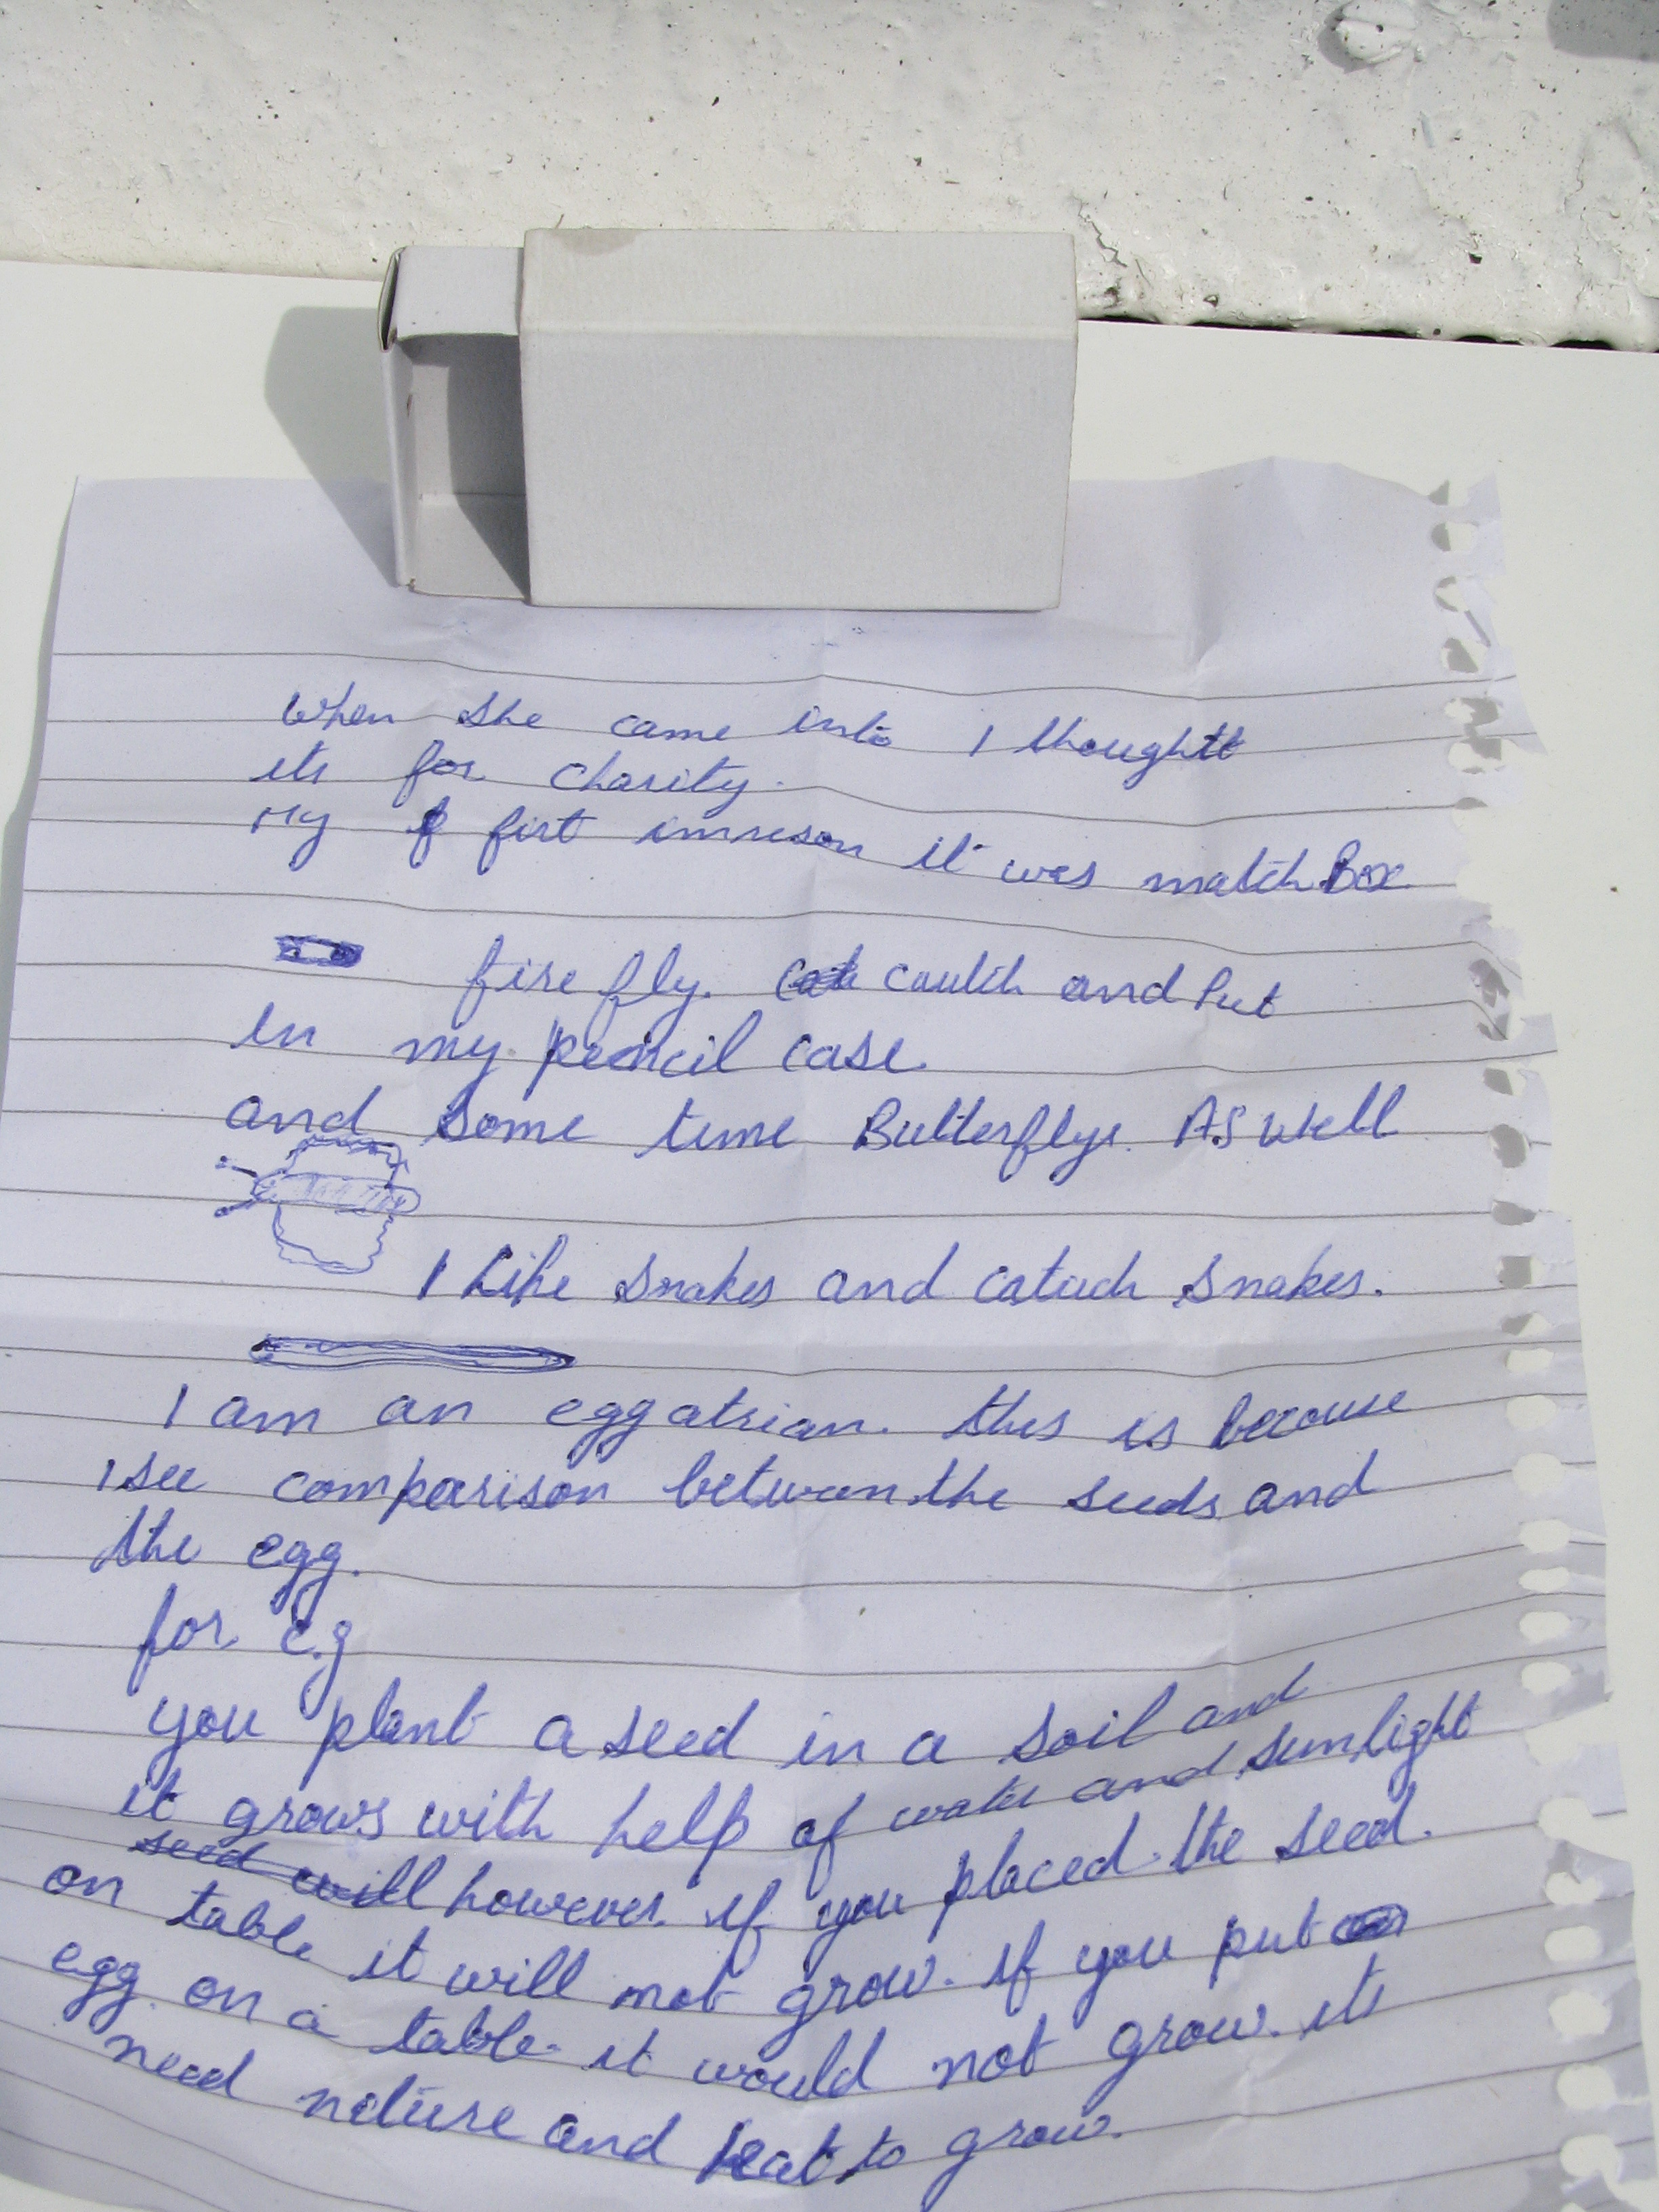 when she came into I thought
its for charity.
My first imreson it was match Box
fire fly. cautch and Put
in my pencil case.
and some time Butterflys. AS well
I Like snakes and catach snakes.
I am an eggatrian. this is because
I see comparison between the seeds and
the egg.
for e.g
you plant a seed in a soil and
it grows with help of water and sunlight
seed will however. if you placed the seed.
on table it will not grow. if you put
egg on a table it would not grow. its
need neture and heat to grow.